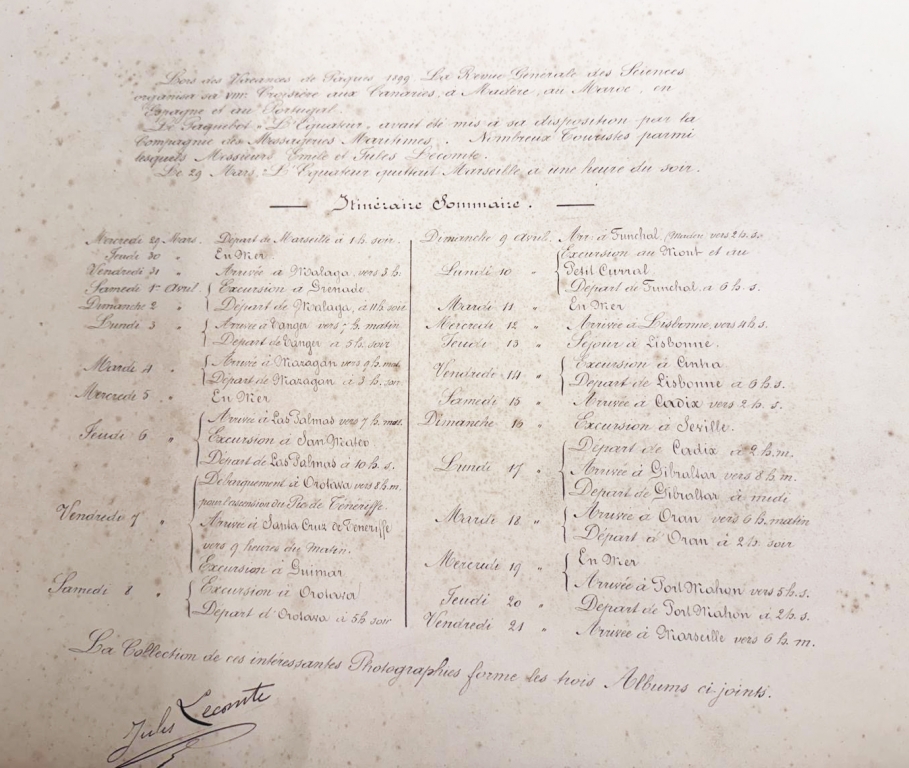 Lors des Vacances de Pâques 1899 La Revue Générale des Sciences
organisa sa VIIIe Croisière aux Canaries, à Madère, au Maroc, en
Espagne et au Portugal.
Le Paquebot "L'Equateur" avait été mis à sa disposition par la
Compagnie des Messageries Maritimes. Nombreux Touristes parmi
lesquels Messieurs Emile et Jules Lecomte.
Le 29 Mars, L'Equateur quittait Marseille à une heure du soir.
Itinéraire Sommaire.
Mercredi 29 Mars. Départ de Marseille à 1 h. soir.
Jeudi 30 " En Mer
Vendredi 31 " Arrivée à Malaga vers 3 h.
Samedi 1er Avril Excursion à Grenade.
Dimanche 2 " Départ de Malaga, à 11 h soir
Lundi 3 " Arrivée à Tanger vers 7 h. matin
Départ de Tanger à 5 h. soir
Mardi 4 " Arrivée à Mazagan vers 9 h. mat.
Départ de Mazagan à 3 h. soir
Mercredi 5 " En Mer
Jeudi 6 " Arrivée à Las Palmas vers 7 h. mat.
Excursion à San Mateo
Départ de Las Palmas à 10 h. s.
Vendredi 7 " Débarquement à Orotava vers 8 h. m.
pour l'ascension du Pic de Ténériffe
Arrivée à Santa Cruz de Ténériffe
vers 9 heures du Matin.
Excursion à Guimar
Samedi 8 " Excursion à Orotava
Départ d'Orotava à 5 h soir
Dimanche 9 Avril. Arr. à Funchal, (Madère) vers 2 h. s.
Lundi 10 " Excursion au Mont et au
Petit Curral
Départ de Funchal à 6 h. s.
Mardi 11 " En Mer
Mercredi 12 " Arrivée à Lisbonne, vers 4 h s.
Jeudi 13 " Séjour à Lisbonne.
Vendredi 14 " Excursion à Cintra
Départ de Lisbonne à 6 h. s.
Samedi 15 " Arrivée à Cadix vers 2 h. s.
Dimanche 16 " Excursion à Séville.
Lundi 17 " Départ de Cadix à 2 h. m.
Arrivée à Gibraltar vers 8 h. m.
Départ de Gibraltar à midi
Mardi 18 " Arrivée à Oran vers 6 h. matin
Départ d'Oran à 2 h. soir
Mercredi 19 " En Mer
Arrivée à Port Mahon vers 5 h. s.
Jeudi 20 " Départ de Port Mahon à 2 h. s.
Vendredi 21 " Arrivée à Marseille vers 6 h. m.
La Collection de ces intéressantes Photographies forme les trois Albums ci-joints.
Jules Lecomte